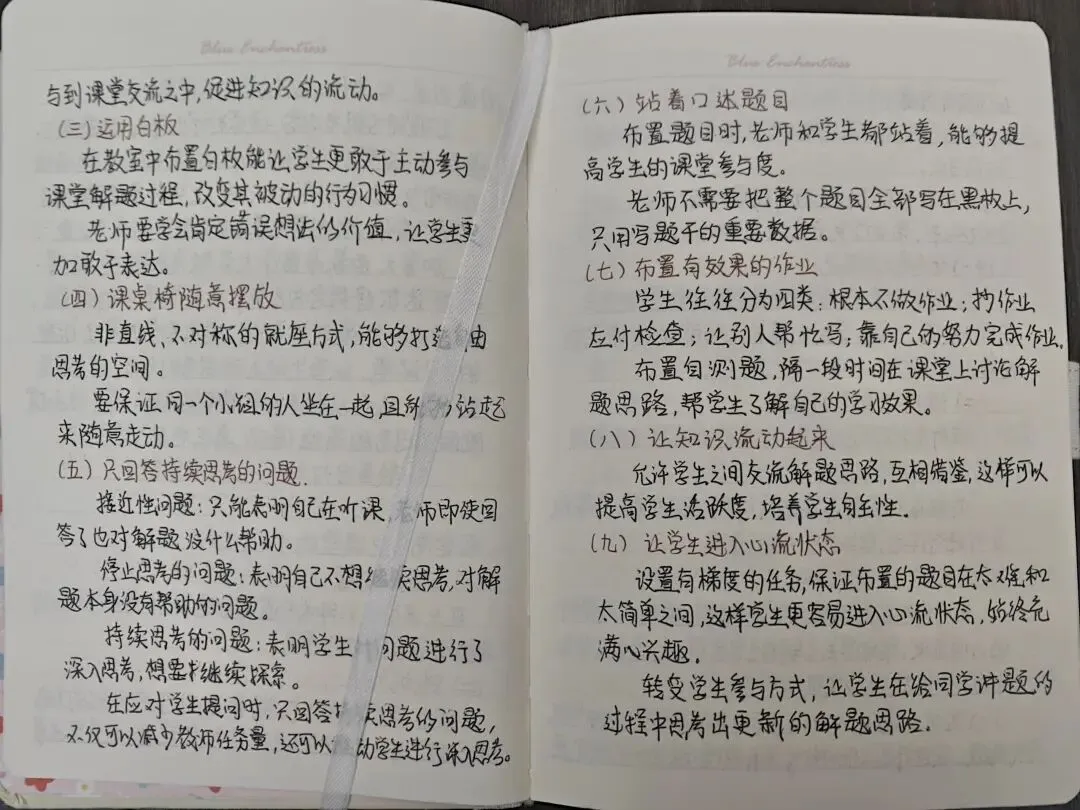 Blue Enchantress
与到课堂交流之中,促进知识的流动。
(三)运用白板
在教室中布置白板能让学生更敢于主动参与
课堂解题过程,改变其被动的行为习惯。
老师要学会肯定错误想法的价值,让学生更
加敢于表达。
(四)课桌椅随意摆放
非直线、不对称的就座方式,能够打造 由
思考的空间。
要保证同一个小组的人坐在一起,且 站起
来随意走动。
(五)只回答持续思考的问题.
接近性问题:只能表明自己在听课,老师即使回
答了也对解题没什么帮助。
停止思考的问题:表明自己不想 续思考,对解
题本身没有帮助的问题。
持续思考的问题:表明学生 问题进行了
深入思考,想要 继续探索。
在应对学生提问时,只回答 续思考的问题,
不仅可以减少教师任务量,还可以 动学生进行深入思考。
Blue Enchantress
(六)站着口述题目
布置题目时,老师和学生都站着,能够提
高学生的课堂参与度。
老师不需要把整个题目全部写在黑板上,
只用写题干的重要数据。
(七)布置有效果的作业
学生往往分为四类:根本不做作业;抄作业
应付检查;让别人帮忙写;靠自己的努力完成作业.
布置自测题,隔一段时间在课堂上讨论解
题思路,帮学生了解自己的学习效果。
(八)让知识流动起来
允许学生之间交流解题思路,互相借鉴,这样可以
提高学生活跃度,培养学生自主性.
(九)让学生进入心流状态
设置有梯度的任务,保证布置的题目在太难和
太简单之间,这样学生更容易进入心流状态,始终充
满心兴趣.
转变学生参与方式,让学生在给同学讲题的
过程中思考出更新的解题思路.